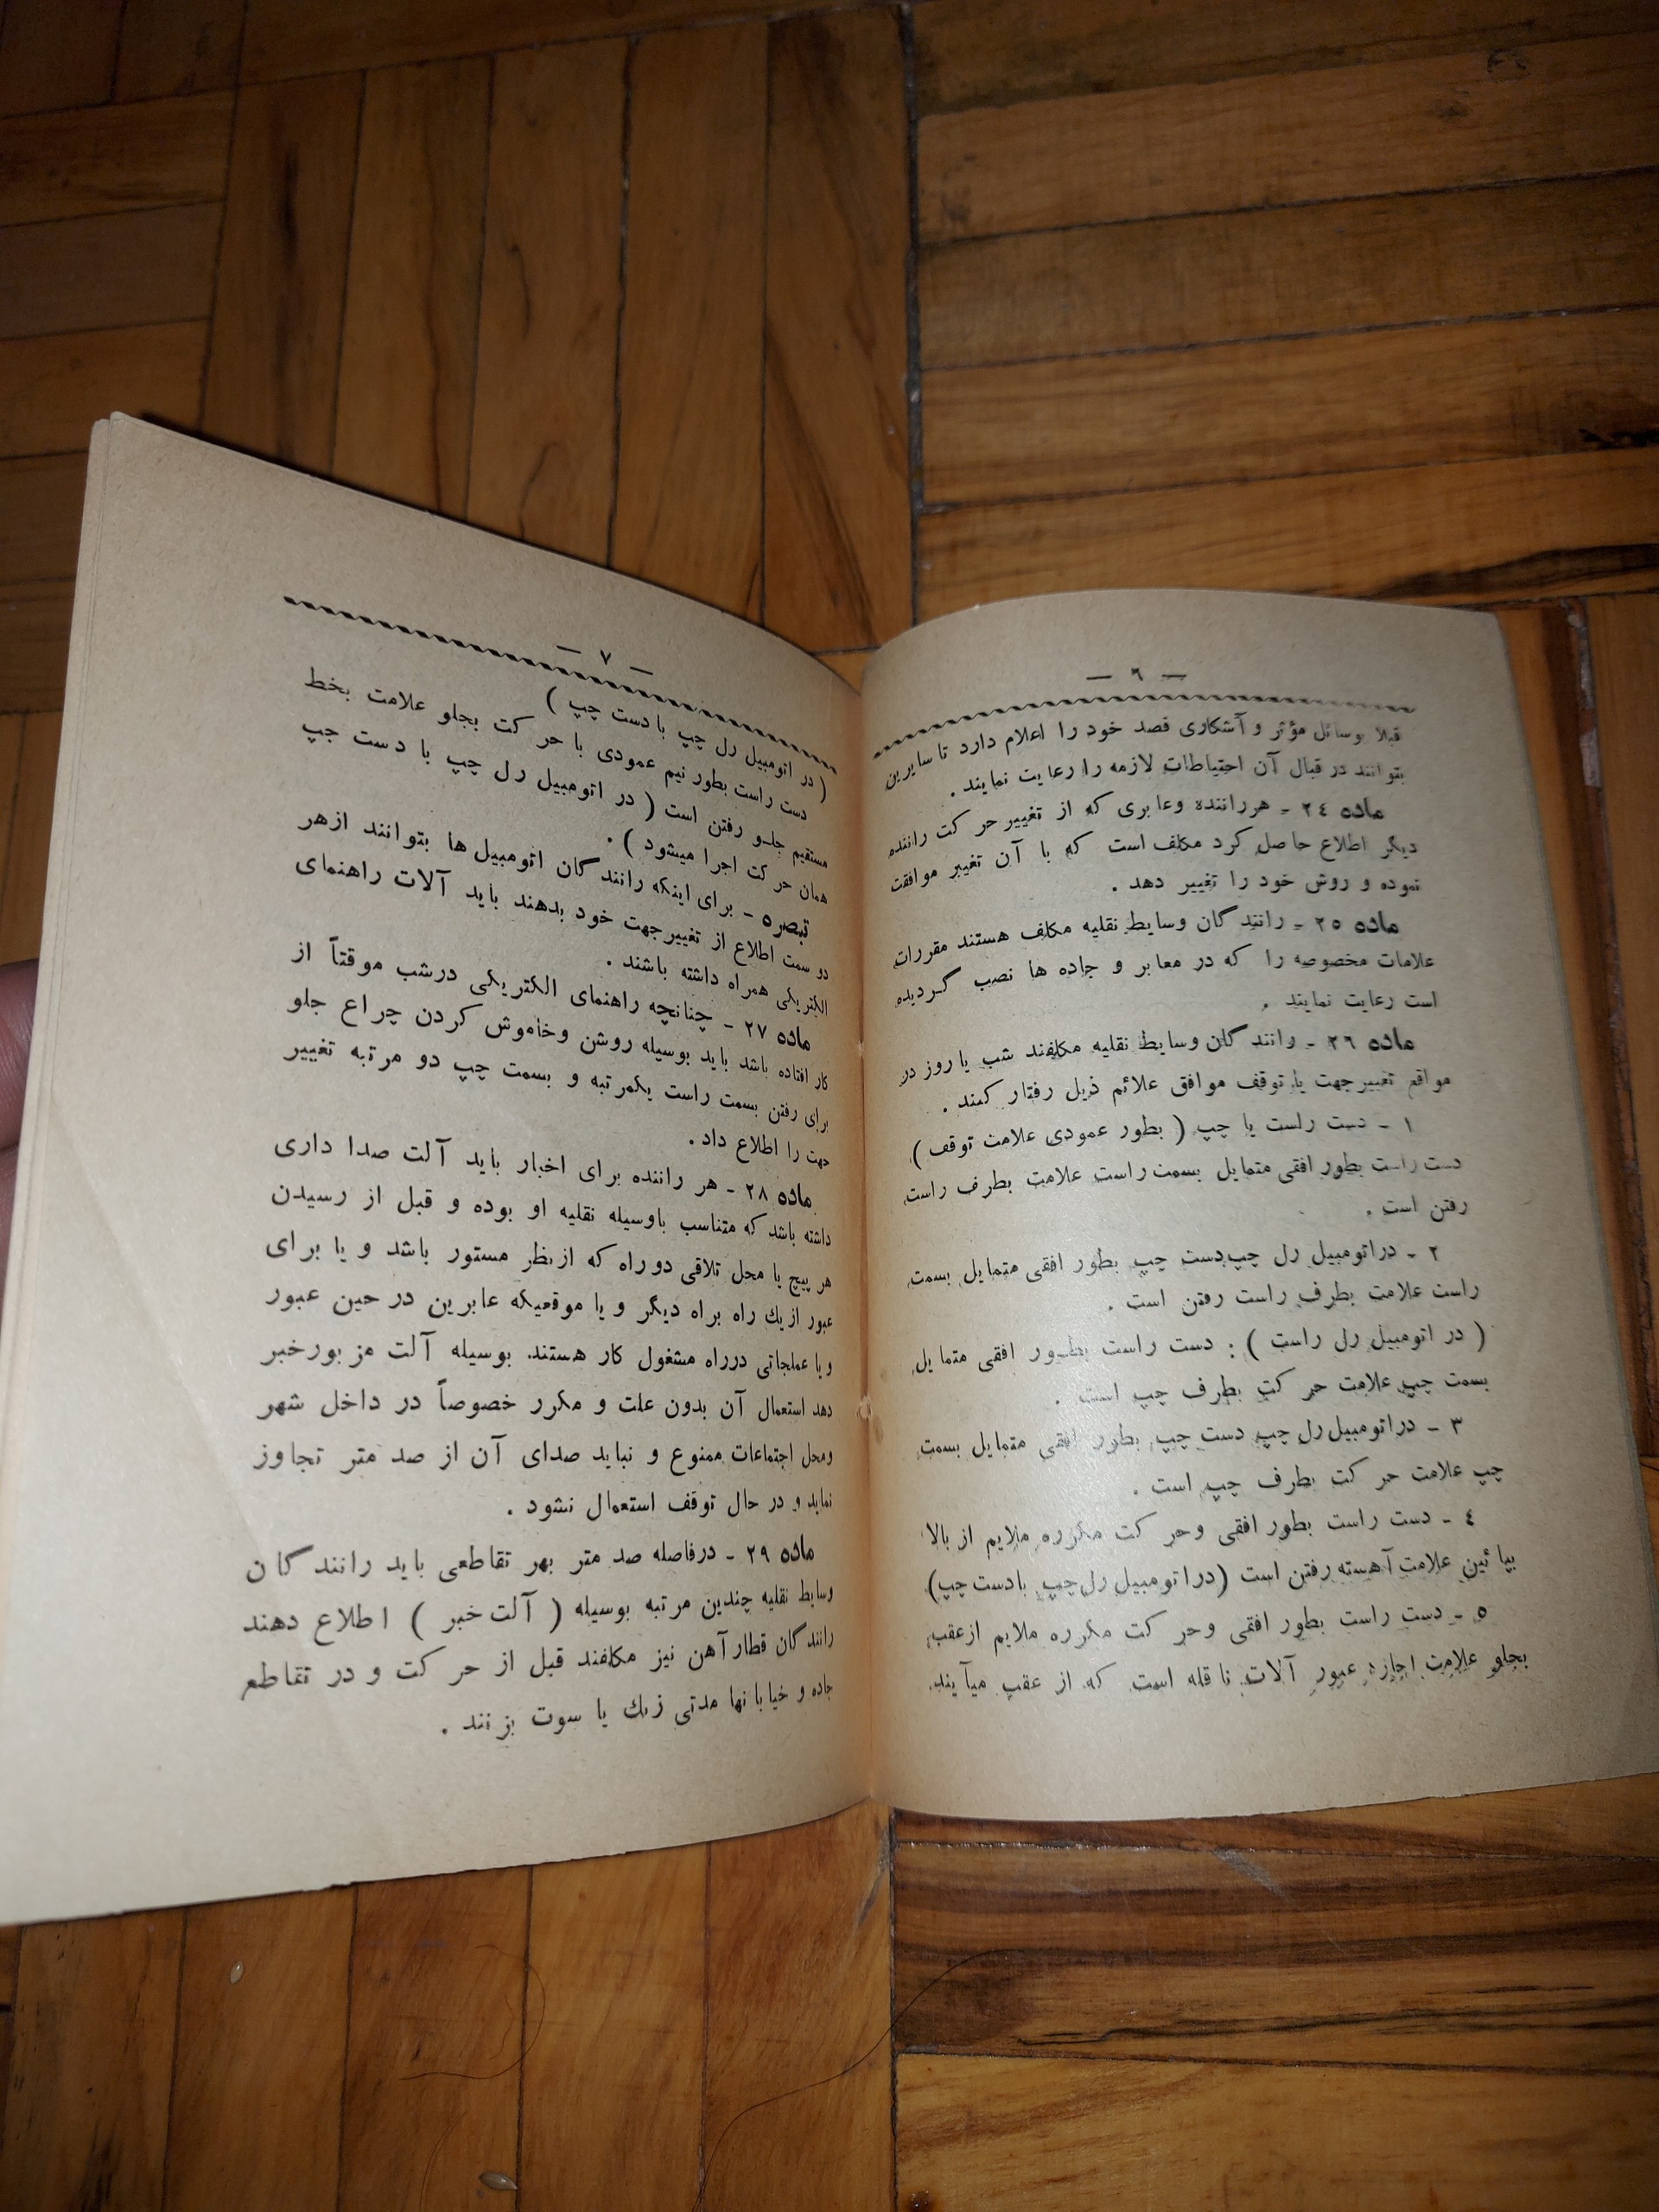 — ٦ —
قبلا بوسائل مؤثر و آشکاری قصد خود را اعلام دارد تا سایرین
بتوانند در قبال آن احتیاطات لازمه را رعایت نمایند .
ماده ٢٤ ـ هرراننده وعابری که از تغییر حرکت راننده
دیگر اطلاع حاصل کرد مکلف است که با آن تغییر موافقت
نموده و روش خود را تغییر دهد .
ماده ٢٥ ـ رانندگان وسایط نقلیه مکلف هستند مقررات
علامات مخصوصه را که در معابر و جاده ها نصب گردیده
است رعایت نمایند .
ماده ٢٦ ـ رانندگان وسایط نقلیه مکلفند شب یا روز در
مواقع تغییر جهت یا توقف موافق علائم ذیل رفتار کنند .
١ ـ دست راست یا چپ ( بطور عمودی علامت توقف )
دست راست بطور افقی متمایل بسمت راست علامت بطرف راست
رفتن است .
٢ ـ دراتومبیل رل چپ دست چپ بطور افقی متمایل بسمت
راست علامت بطرف راست رفتن است .
( در اتومبیل رل راست ) : دست راست بطور افقی متمایل
بسمت چپ علامت حرکت بطرف چپ است .
٣ ـ دراتومبیل رل چپ دست چپ بطور افقی متمایل بسمت
چپ علامت حرکت بطرف چپ است .
٤ ـ دست راست بطور افقی وحرکت مکرره ملایم از بالا
بپائین علامت آهسته رفتن است (دراتومبیل رل چپ بادست چپ)
٥ ـ دست راست بطور افقی وحرکت مکرره ملایم ازعقب
بجلو علامت اجازه عبور آلات ناقله است که از عقب میآیند.
— ٧ —
( در اتومبیل رل چپ با دست چپ )
دست راست بطور نیم عمودی با حرکت بجلو علامت بخط
مستقیم جلو رفتن است ( در اتومبیل رل چپ با دست چپ
همان حرکت اجرا میشود ) .
تبصره ـ برای اینکه رانندگان اتومبیل ها بتوانند ازهر
دو سمت اطلاع از تغییر جهت خود بدهند باید آلات راهنمای
الکتریکی همراه داشته باشند .
ماده ٢٧ ـ چنانچه راهنمای الکتریکی درشب موقتاً از
کار افتاده باشد باید بوسیله روشن وخاموش کردن چراغ جلو
برای رفتن بسمت راست یکمرتبه و بسمت چپ دو مرتبه تغییر
جهت را اطلاع داد .
ماده ٢٨ ـ هر راننده برای اخبار باید آلت صدا داری
داشته باشد که متناسب باوسیله نقلیه او بوده و قبل از رسیدن
هر پیچ یا محل تلاقی دوراه که ازنظر مستور باشد و یا برای
عبور ازیك راه براه دیگر و یا موقعیکه عابرین در حین عبور
ویا عملجاتی درراه مشغول کار هستند. بوسیله آلت مزبورخبر
دهد استعمال آن بدون علت و مکرر خصوصاً در داخل شهر
ومحل اجتماعات ممنوع و نباید صدای آن از صد متر تجاوز
نماید و در حال توقف استعمال نشود .
ماده ٢٩ ـ درفاصله صد متر بهر تقاطعی باید رانندگان
وسایط نقلیه چندین مرتبه بوسیله ( آلت خبر ) اطلاع دهند
رانندگان قطارآهن نیز مکلفند قبل از حرکت و در تقاطع
جاده و خیابانها مدتی زنك یا سوت بزنند .